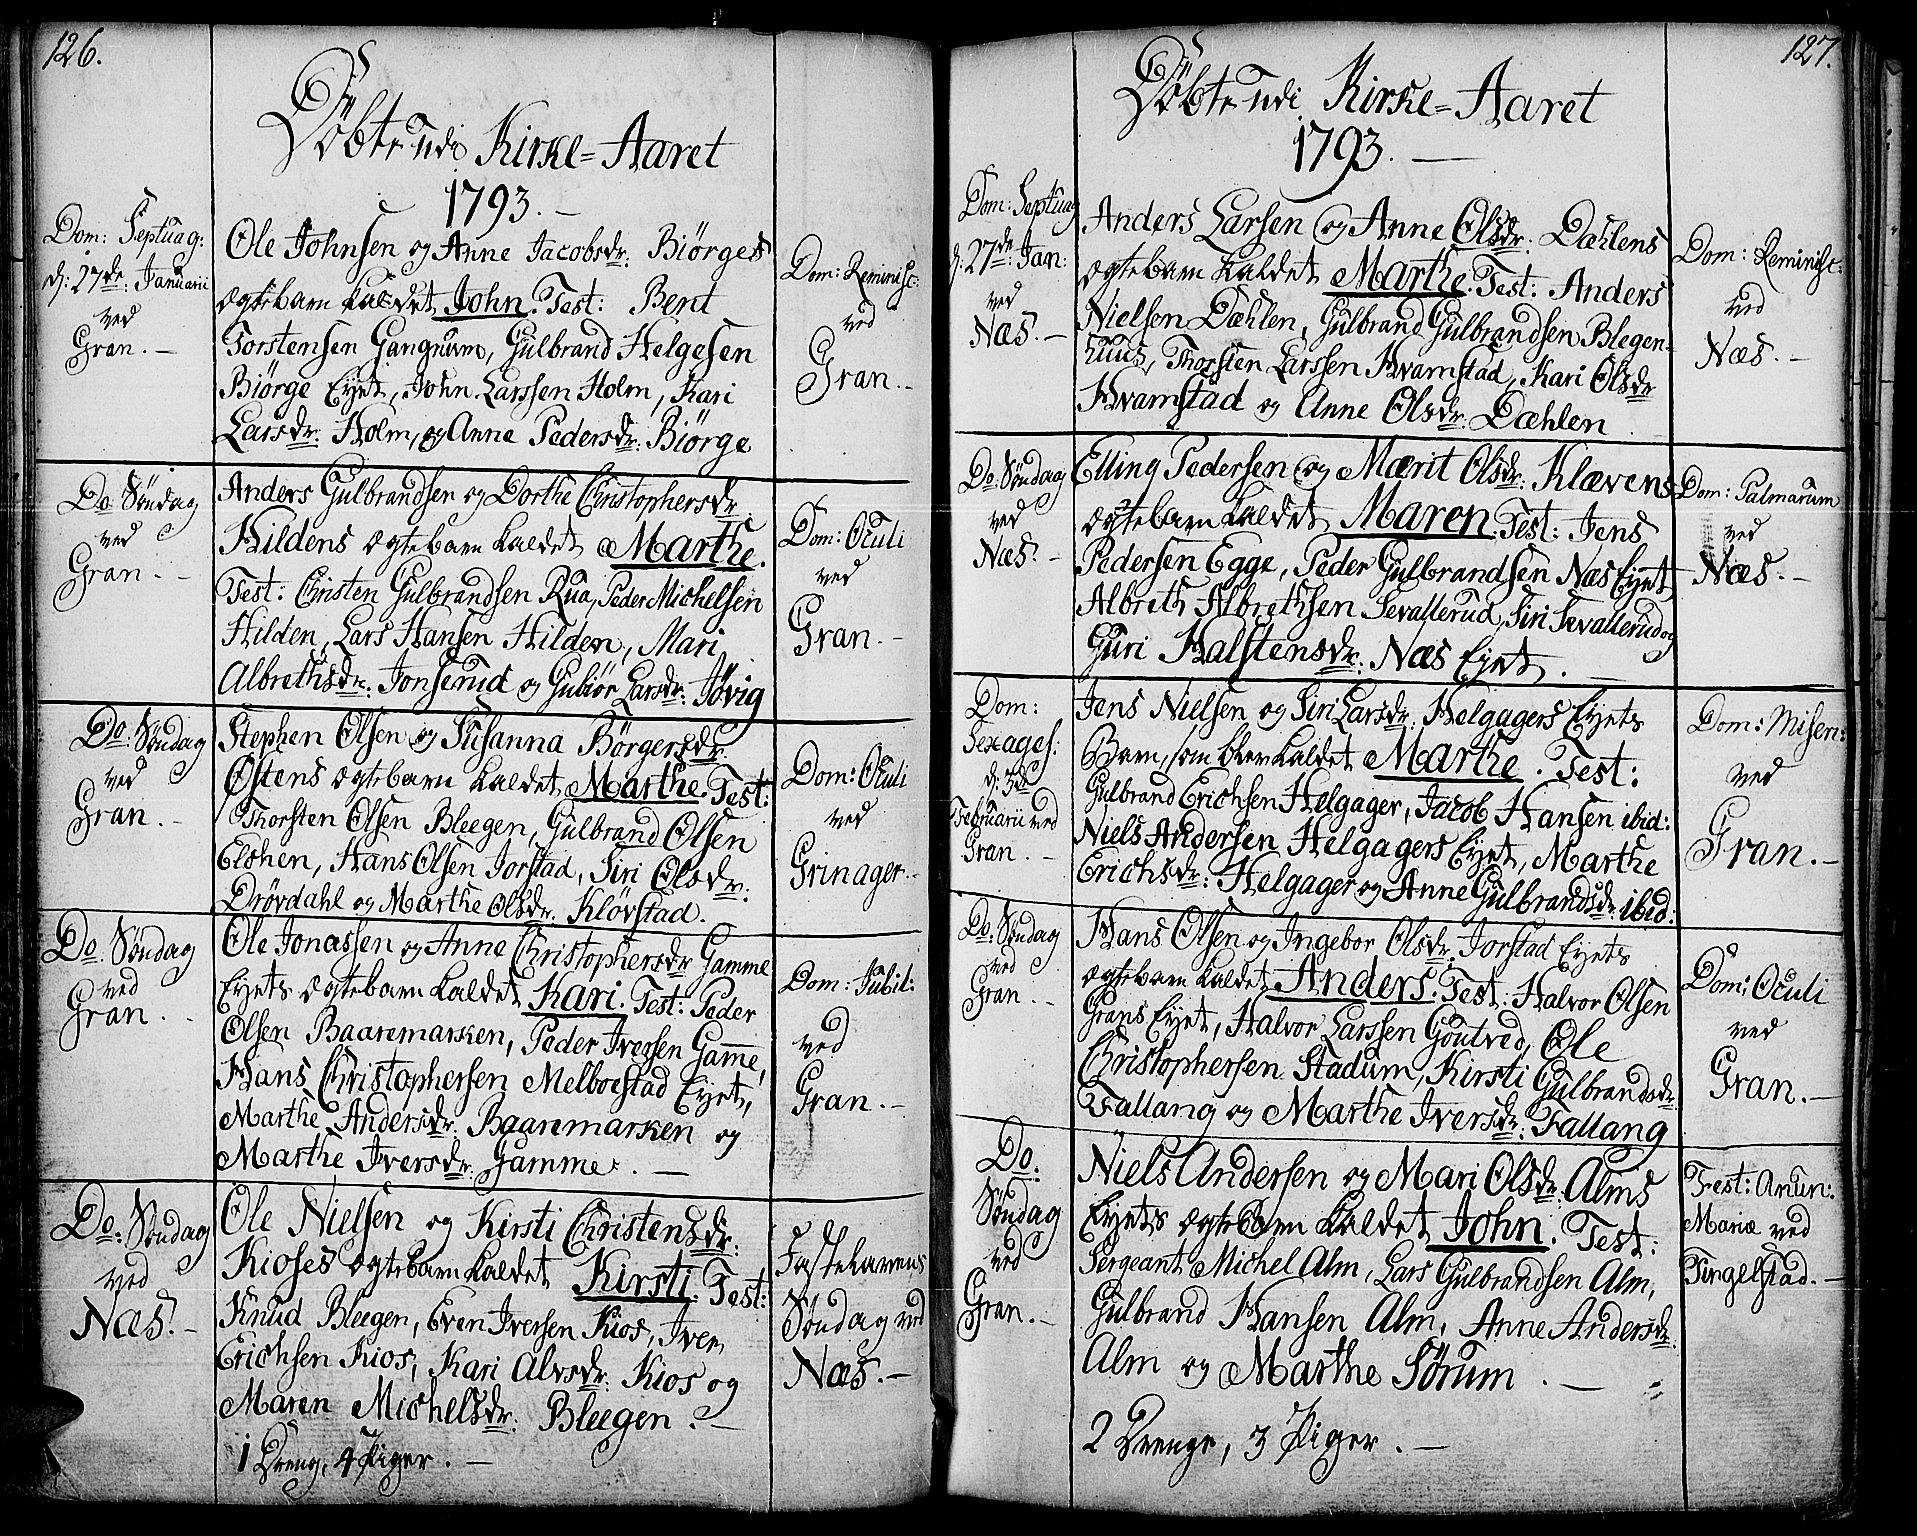 126.
Döbte udi Kirke=Aaret
1793. —
Dom: Septuag:
d: 27de Januarii
ved
Gran. —
Ole Johnsen og Anne Jacobsdr: Biörges
ægtebarn kaldet John. Test: Bent
Torstensen Gangnum, Gulbrand Helgesen
Biörge Eyet, John Larssen Holm, Kari
Larsdr: Holm, og Anne Pedersdr: Biörge
Dom: Reminisc:
ved
Gran. —
Do Söndag
ved
Gran. —
Anders Gulbrandsen og Dorthe Christophersdr
Hildens ægtebarn kaldet Marthe.
Test: Christen Gulbrandsen Rua, Peder Michelsen
Hilden, Lars Hansen Hilden, Mari
Albrethsdr: Jonserud og Gubiör Larsdr: Jövig
Dom: Oculi
ved
Gran. —
Do: Söndag
ved
Gran. —
Stephen Olsen og Susanna Börgersdr
Östens ægtebarn kaldet Marthe. Test:
Thorsten Olsen Bleegen, Gulbrand Olsen
Elshen, Hans Olsen Jorstad, Siri Olsdr:
Drövdahl og Marthe Olsdr. Klövstad.
Dom: Oculi
ved
Grinager. —
Do. Söndag
ved
Gran. —
Ole Jonassen og Anne Christophersdr Gamme
Eyets ægtebarn kaldet Kari. Test: Peder
Olsen Baaremarken, Peder Iversen Gam̄e,
Hans Christophersen Melboestad Eyet,
Marthe Andersdr: Baaremarken og
Marthe Iversdr: Gamme. —
Dom: Jubil:
ved
Gran. —
Do: Söndag
ved
Næs. —
Ole Nielsen og Kirsti Christensdr:
Kioses ægtebarn kaldet Kirsti. Test:
Knud Bleegen, Even Iversen Kios, Iver
Erichsen Kios, Kari Alvsdr: Kios og
Maren Michelsdr: Bleegen. —
Fastelavens
Söndag ved
Næs. —
1 Dreng, 4 Piger. —
127.
Döbte udi Kirke=Aaret
1793. —
Dom: Septuag
d: 27de: Jan:
ved
Næs. —
Anders Larsen og Anne Olsdr: Dæhlens
ægtebarn kaldet Marthe. Test: Anders
Nielsen Dæhlen, Gulbrand Gulbrandsen Blegen-
huus, Thorsten Larssen Hvamstad, Kari Olsdr
Hvamstad og Anne Olsdr: Dæhlen.
Dom: Reminisc:
ved
Næs. —
Do: Söndag
ved
Næs. —
Elling Pedersen og Marit Olsdr: Klævens
ægtebarn kaldet Maren. Test: Jens
Pedersen Egge, Peder Gulbrandsen Næs Eyet
Albreth Albrethsen Sevallerud, Siri Sevallerud og
Guri Halstensdr: Næs Eyet. —
Dom: Palmarum
ved
Næs. —
Dom:
Sexages:
d: 3de
Februarii ved
Gran. —
Jens Nielsen og Siri Larsdr. Helgagers Eyets
Barn, som blev kaldet Marthe. Test:
Gulbrand Erichsen Helgager, Jacob Hansen ibid:
Niels Andersen Helgagers Eyet, Marthe
Erichsdr: Helgager og Anne Gulbrandsdr: ibid:
Dom: Misen:
ved
Gran. —
Do: Söndag
ved
Gran. —
Hans Olsen og Ingebor Olsdr. Jorstad Eyets
ægtebarn kaldet Anders. Test: Halvor Olsen
Grans Eyet, Halvor Larssen Goutved, Ole
Christophersen Stadum, Kirsti Gulbrandsdr
Fallang og Marthe Iversdr: Fallang
Dom: Oculi
ved
Gran. —
Do.
Söndag
ved
Gran. —
Niels Andersen og Mari Olsdr: Alms
Eyets ægtebarn kaldet John. Test:
Sergeant Michel Alm, Lars Gulbrandsen Alm,
Gulbrand Hansen Alm, Anne Andersdr
Alm og Marthe Sörum. —
Fest: Anun:
Mariæ ved
Tingelstad. —
2 Drenge, 3 Piger. —